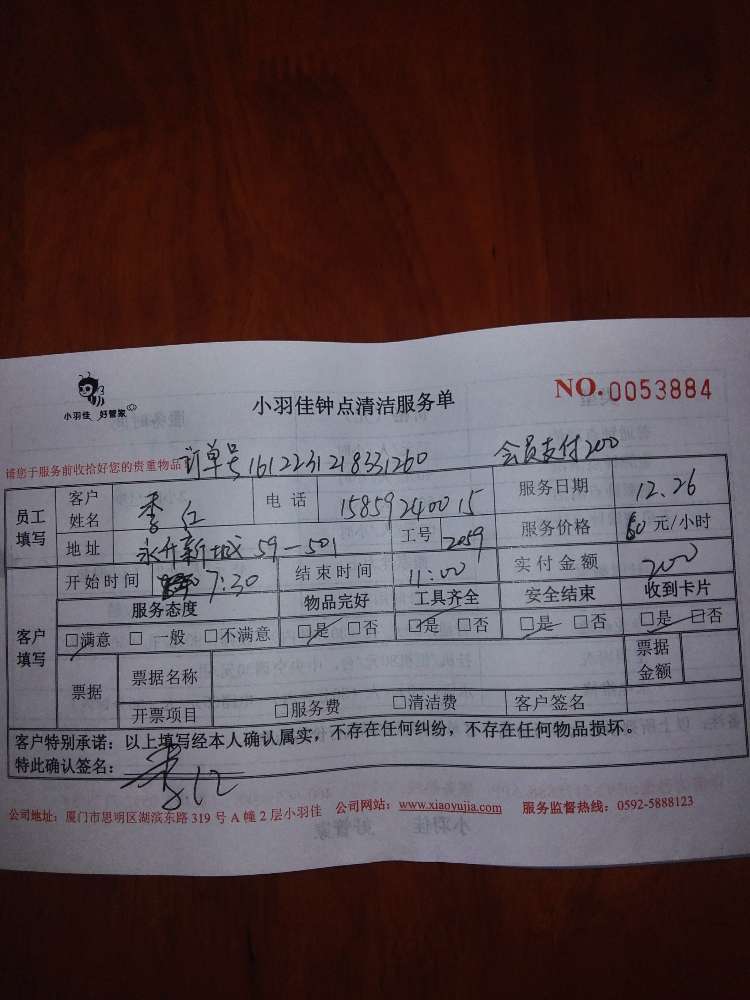 小羽佳 好管家
小羽佳钟点清洁服务单
NO.0053884
请您于服务前收拾好您的贵重物品
订单号1612231218331260
会员支付200
员工填写
客户姓名 李红 电话 15859240015 服务日期 12.26
地址 永升新城59-501 工号 2059 服务价格 60元/小时
客户填写
开始时间 7:30 结束时间 11:00 实付金额 200
服务态度 物品完好 工具齐全 安全结束 收到卡片
□满意 □一般 □不满意 □是 □否 □是 □否 □是 □否 □是 □否
票据 票据名称 票据金额
开票项目 □服务费 □清洁费 客户签名
客户特别承诺：以上填写经本人确认属实，不存在任何纠纷，不存在任何物品损坏。
特此确认签名：李红
公司地址：厦门市思明区湖滨东路319号A幢2层小羽佳 公司网站：www.xiaoyujia.com 服务监督热线：0592-5888123